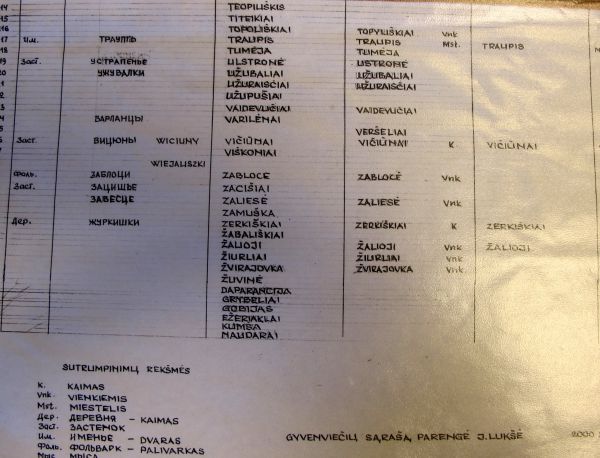 14 TEOPILIŠKIS
15 TITEIKIAI
16 TOPOLIŠKIAI TOPYLIŠKIAI Vnk
17 Им. ТРАУПЬ TRAUPIS TRAUPIS Mst. TRAUPIS
18 TUMĖJA TUMĖJA
19 Заст. УСТРАПЕНЬЕ ULSTRONĖ USTRONĖ
20 УЖУВАЛКИ UŽUBALIAI UŽUBALIAI
1 UŽURAISČIAI UŽURAISČIAI
2 UŽUPUŠIAI
3 VAIDEVUČIAI VAIDEVUČIAI
4 ВАРЛАНЦЫ VARILĖNAI
5 VERŠELIAI
6 Заст. ВИЦЮНЫ WICIUNY VIČIŪNAI VIČIŪNAI K VIČIŪNAI
VIŠKONIAI
WIEJALISZKI
Фоль. ЗАБЛОЦИ ZABLOCĖ ZABLOCĖ Vnk
Заст. ЗАЦИШЬЕ ZACIŠIAI
ЗАВЕСЦЕ ZALIESĖ ZALIESĖ Vnk
ZAMUŠKA
Дер. ЖУРКИШКИ ZERKIŠKIAI ZERKIŠKIAI K ZERKIŠKIAI
ŽABALIŠKIAI
ŽALIOJI ŽALIOJI Vnk ŽALIOJI
ŽIURLIAI ŽIURLIAI Vnk
ŽVIRAJOVKA ŽVIRAJOVKA Vnk.
ŽUVINĖ
DAPARANCIJA
GRYBELIAI
GOBIJAS
EŽERIAKLAI
KUMBA
NAUDARAI
SUTRUMPINIMŲ REKŠMĖS
K. KAIMAS
Vnk. VIENKIEMIS
Mst. MIESTELIS
Дер. ДЕРЕВНЯ – KAIMAS
Заст. ЗАСТЕНОК
Им. ИМЕНЬЕ – DVARAS
Фоль. ФОЛЬВАРК – PALIVARKAS
GYVENVIEČIŲ SĄRAŠĄ PARENGĖ J. LUKŠĖ 2000